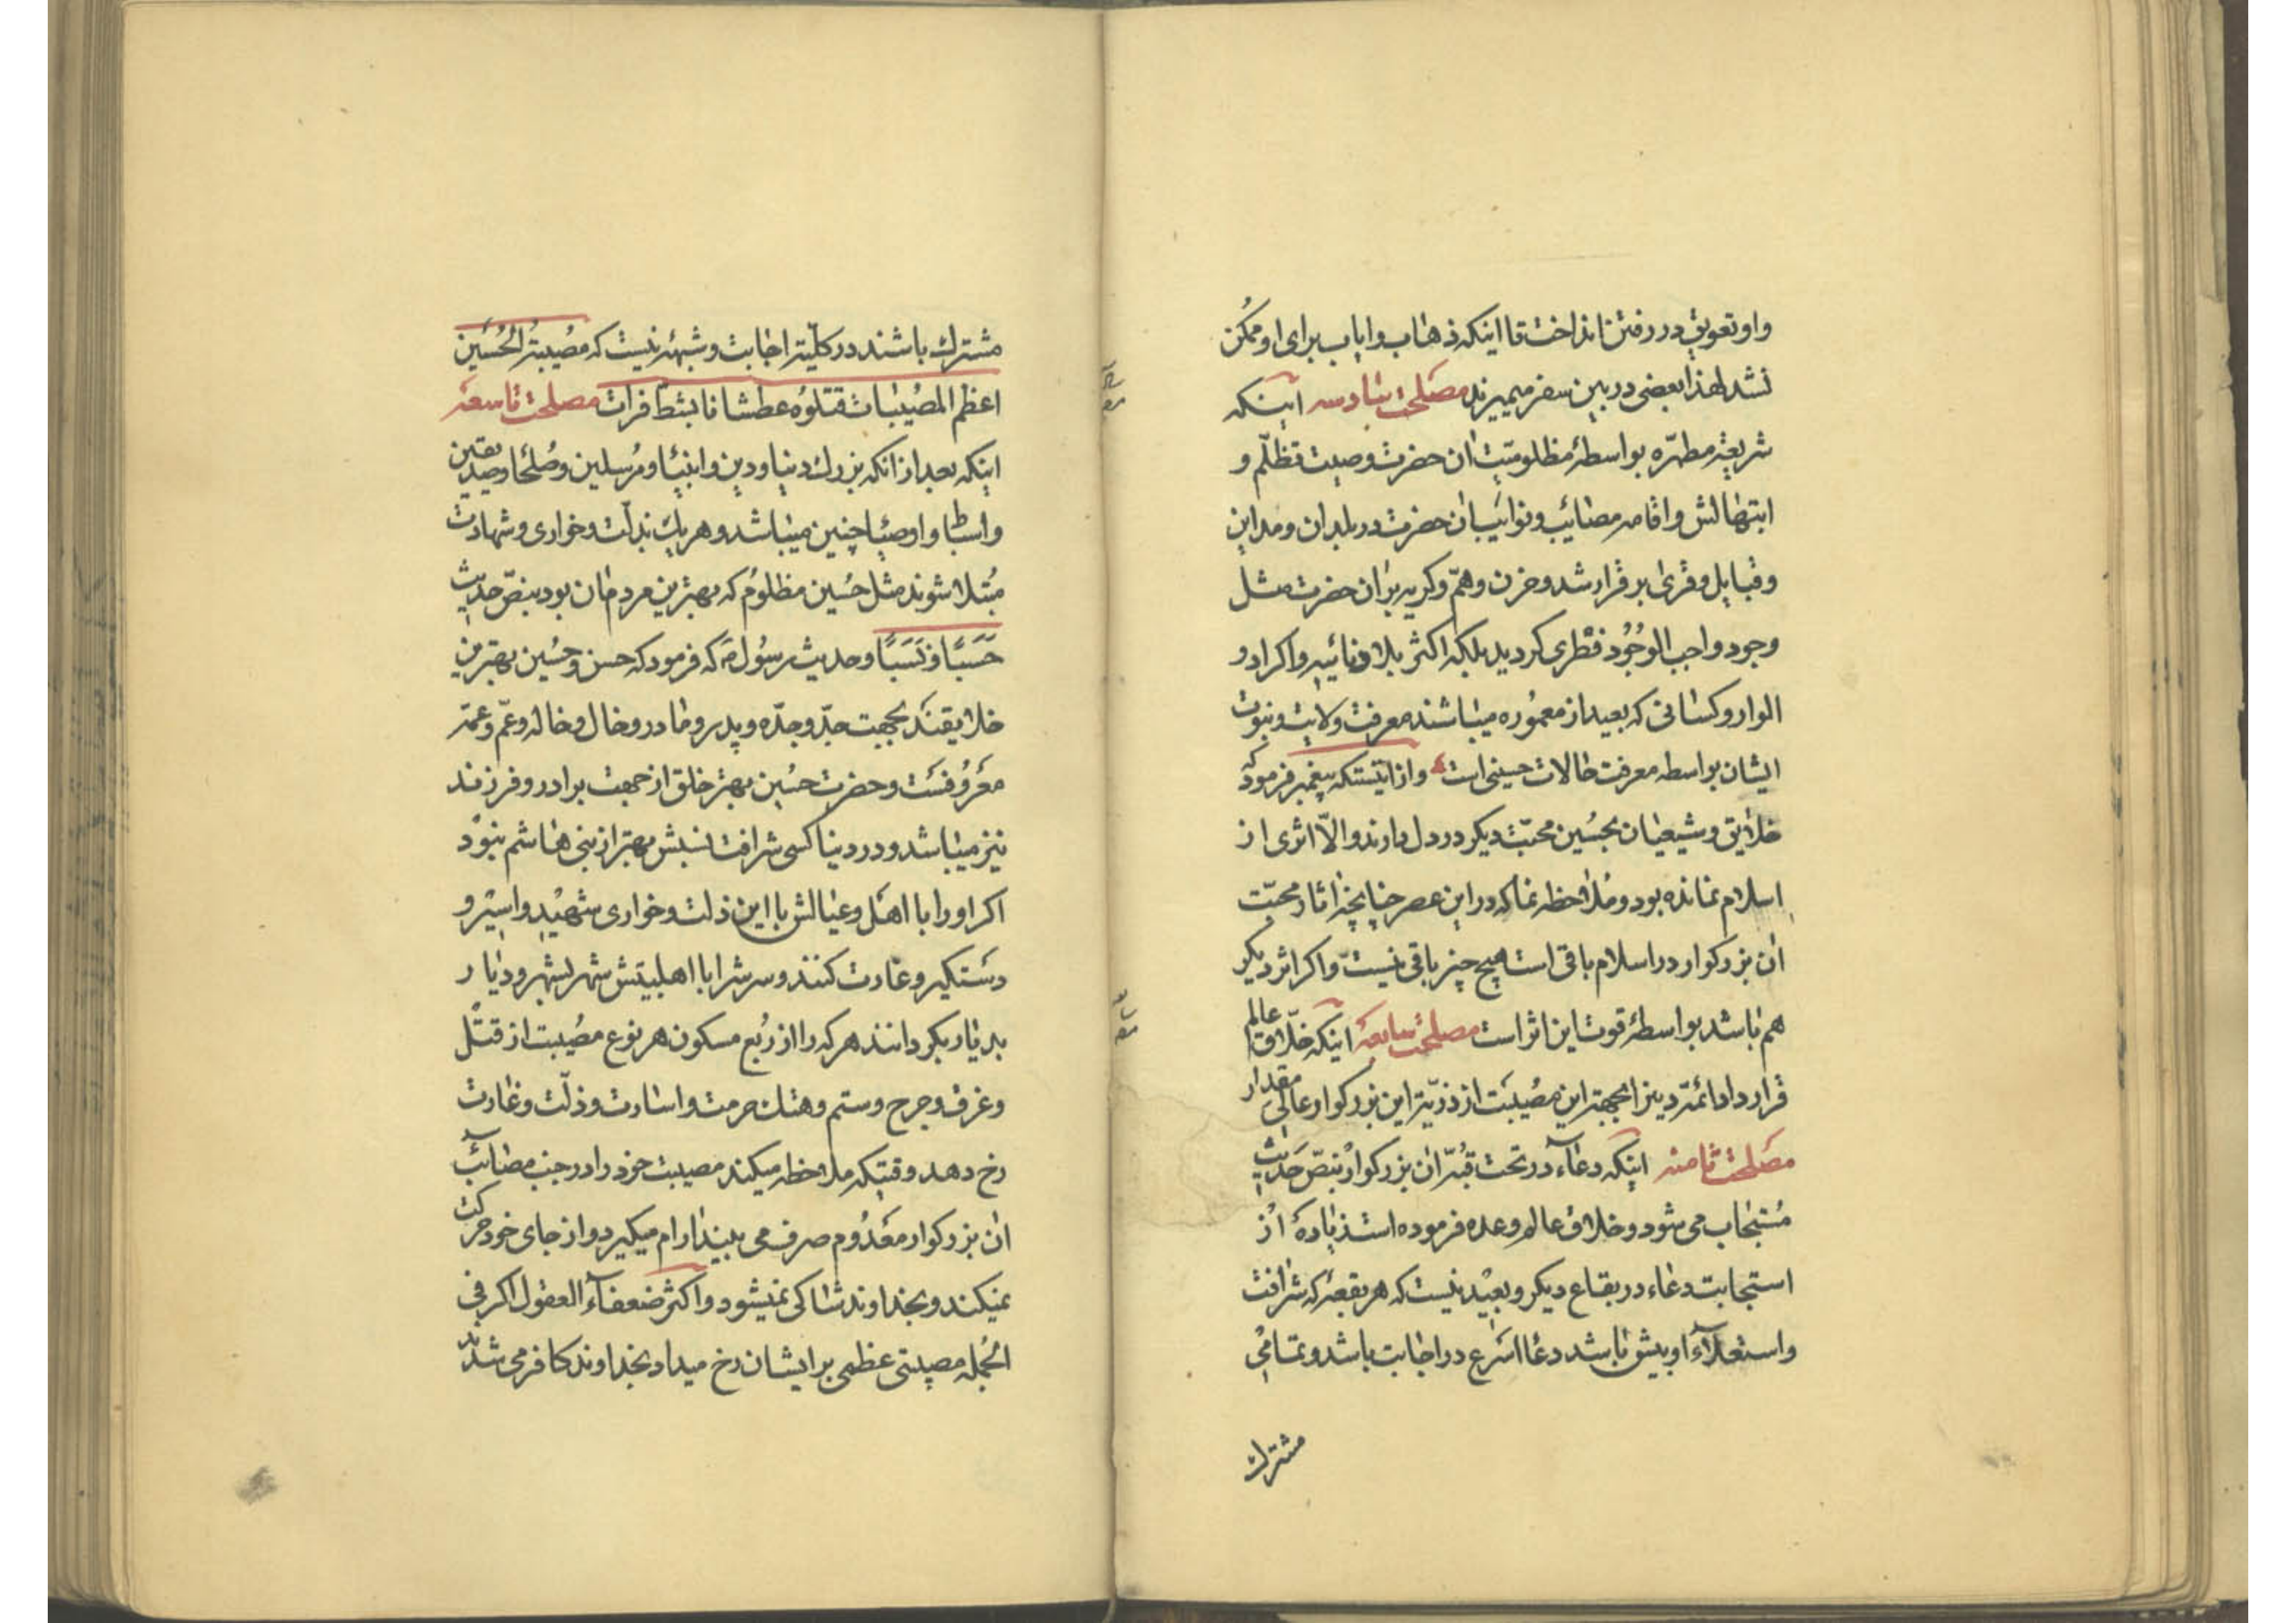 و او تعویق در رفتن انداخت تا اینکه ذهاب و ایاب برای او ممکن
نشد لهذا بعضی در بین سفر میمیرند مصلحت سادسه اینکه
شریعهٔ مطهّره بواسطهٔ مظلومیّت ان حضرت وصیت تظلّم و
ابتهالش و اقامه مصائب و نوائب ان حضرت در بلدان و مداین
و قبایل و قری برقرار شد و حزن و همّ و کریه بر ان حضرت مثل
وجود واجب الوجُود فطری کردید بلکه اکثر بلاد نائیه و اکراد و
الوار و کسانی که بعید از معموره میباشند معرفت ولایت و نبوت
ایشان بواسطه معرفت حالات حسینی است و از اینستکه پیغمبر فرمود که
خلایق و شیعیان بحسُین محبّت دیکر در دل دارند و الّا اثری از
اسلام نمانده بود و مُلاحظه نما که در این عصر چنانچه اثار محبّت
ان بزرکوار در اسلام باقی است هیچ چیز باقی نیست و اکر اثر دیکر
هم باشد بواسطهٔ قوت این اثر است مصلحت سابعهٔ اینکه خلّاق عالم
قرار داد ائمّه دین را بجهته این مصُیبت از ذرّیّه این بزرکوار عالی مقدار
مصلحت ثامنه اینکه دعآء در تحت قبّهٔ ان بزرکوار بنصّ حَدیث
مُستجاب می شود و خلاق عالم وعده فرموده است زیادهٔ از
استجابت دعاء در بقاع دیکر و بعیْد نیست که هر بقعهٔ که شرافت
و استعلآء او بیش باشد دعا اسَرع در اجابت باشد و تمامی
مشترك
مشترك باشند در کلّیّه اجابت و شبهه نیست که مصُیبتُه الحُسَین
اعظم المصُیبات قتلوُه عطشانا بشطّ فرات مصلحت تاسعَه
اینکه بعد از انکه بزرك دنیا و دین و انبیا و مرُسلین و صُلحا و صدیقین
و اسباط و اوصیا چنین میباشد و هر یك بذلّت و خواری و شهادت
مُبتلا شوند مثل حسُین مظلوُم که بهترین مردمان بود بنصّ حدیث
حَسَبًا و نَسَبًا و حدیث رسوُل ص که فرمود که حسن و حسُین بهترین
خلایقند بجهت جدّ و جدّه و پدر و مادر و خال و خاله و عمّ و عمّه
معَروُفست و حضرت حسُین بهتر خلق از جهت برادر و فرزند
نیز میباشد و در دنیا کسی شرافت نسبش بهتر از بنی هاشم نبوْد
اکر او را با اهل و عیالش با این ذلت و خواری شهیْد و اسیْر و
دستکیر و غارت کنند و سرش را با اهلبیتش شهر بشهر و دیار
بدیار بکردانند هر که را از ربُع مسکون هر نوع مصُیبت از قتل
و غرق و جرح و ستم و هتك حرمت و اسارت و ذلّت و غارت
رخ دهد وقتیکه ملاحظه میکند مصیبت خود را در جنب مصائب
ان بزرکوار معدُوم صرف می بیند ارام میکیرد و از جای خود حرکت
نمیکند و بخداوند شاکی نمیشود و اکثر ضعفآء العقول اکر فی
الجُمله مصیبتی عظمی بر ایشان رخ میداد بخداوند کافر می شدند